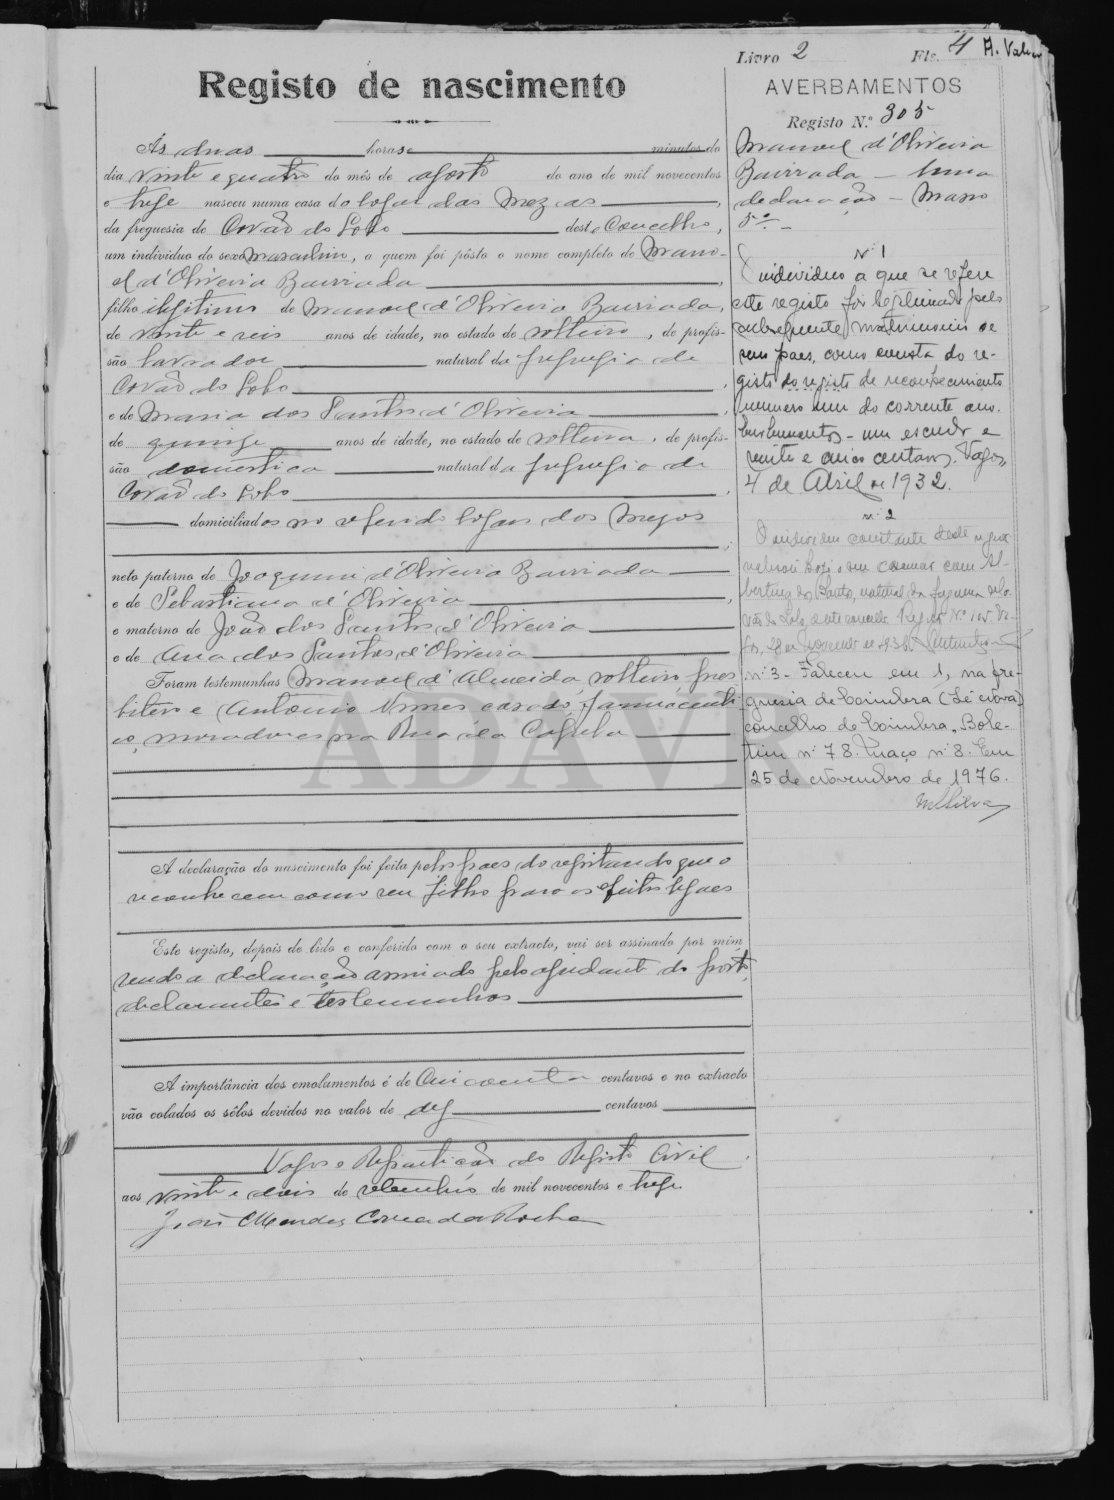 Livro 2 Fls. 4 A. Valen
Registo de nascimento
Ás duas horas e minutos do
dia vinte e quatro do mês de agosto do ano de mil novecentos
e treze nasceu numa casa do logar das Mezas,
da freguesia de Covão do Lobo deste Concelho,
um individuo do sexo masculino, a quem foi pôsto o nome completo de Mano-
el d'Oliveira Bairrada,
filho ilegitimo de Manoel d'Oliveira Bairrada,
de vinte e seis anos de idade, no estado de solteiro, de profis-
são lavrador natural da freguezia de
Covão do Lobo,
e de Maria dos Santos d'Oliveira,
de quinze anos de idade, no estado de solteira, de profis-
são domestica natural da freguezia de
Covão do Lobo,
domiciliados no referido logar das Mezas
;
neto paterno de Joaquim d'Oliveira Bairrada
e de Sebastiana d'Oliveira,
e materno de João dos Santos d'Oliveira
e de Ana dos Santos d'Oliveira
Foram testemunhas Manoel d'Almeida, solteiro, pres
bitero e Antonio Nunes casado, farmaceuti
co, moradores na Rua da Capela
A declaração do nascimento foi feita pelos paes do registando que o
reconhecem como seu filho para os efeitos legaes
Este registo, depois de lido e conferido com o seu extracto, vai ser assinado por mim
sendo a declaração assinado pelo ajudante do posto,
declarantes e testemunhas
A importância dos emolumentos é de cincoenta centavos e no extracto
vão colados os sêlos devidos no valor de dez centavos
Vagos e Repartição do Registo Civil.
aos vinte e dois de setembro de mil novecentos e treze
João Mendes Correia da Rocha
AVERBAMENTOS
Registo N.º 305
Manoel d'Oliveira
Bairrada - Numa
declaração - Masso
5º -
Nº 1
O individuo a que se refere
este registo foi legitimado pelo
subsequente matrimonio de
seus paes, como consta do re-
gisto do registo de reconhecimento
numero um do corrente ano.
Emolumentos - um escudo e
vinte e cinco centavos. Vagos,
4 de Abril de 1932.
nº 2
O individuo constante deste registo
realisou hoje o seu casamento com Al-
bertina dos Santos, natural da freguesia de Co-
vão do Lobo, deste concelho. Registo Nº 105. Va-
gos, 28 de novembro de 1936.
nº 3 - Faleceu em 1, na fre-
guesia de Coimbra (Sé Nova)
concelho de Coimbra. Bole-
tim nº 78. Maço nº 8. Em
25 de Novembro de 1976.
MSilva
ADAVR